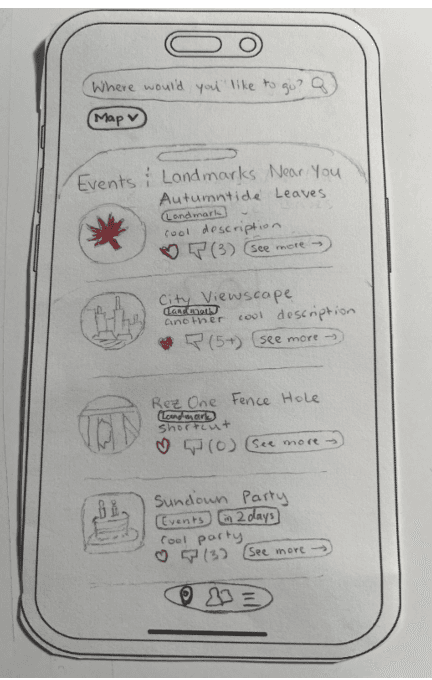 Where would you like to go?
Map
Events & Landmarks Near You
Autumntide Leaves
Landmark
cool description
(3) See more →
City Viewscape
Landmark
another cool description
(5+) See more →
Rez One Fence Hole
Landmark
shortcut
(0) See more →
Sundown Party
Events in 2 days
cool party
(3) See more →